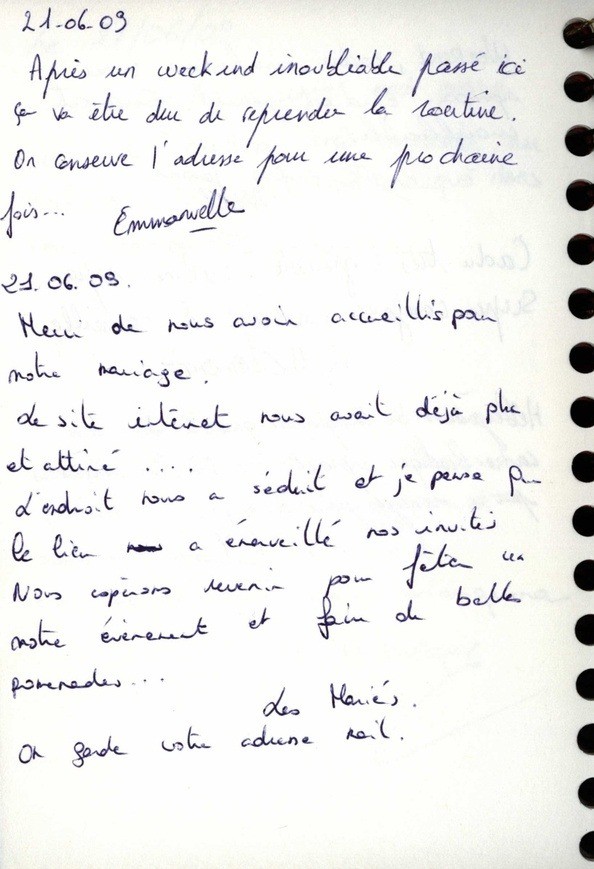 21-06-09
Après un weekend inoubliable passé ici
ça va être dur de reprendre la routine.
On conserve l'adresse pour une prochaine
fois... Emmanuelle
21.06.09.
Merci de nous avoir accueillis pour
notre mariage.
Le site internet nous avait déjà plu
et attiré ....
L'endroit nous a séduit et je pense que
le lieu a émerveillé nos invités
Nous espérons revenir pour fêter
notre évènement et faire de belles
promenades...
Les Mariés.
On garde votre adresse mail.